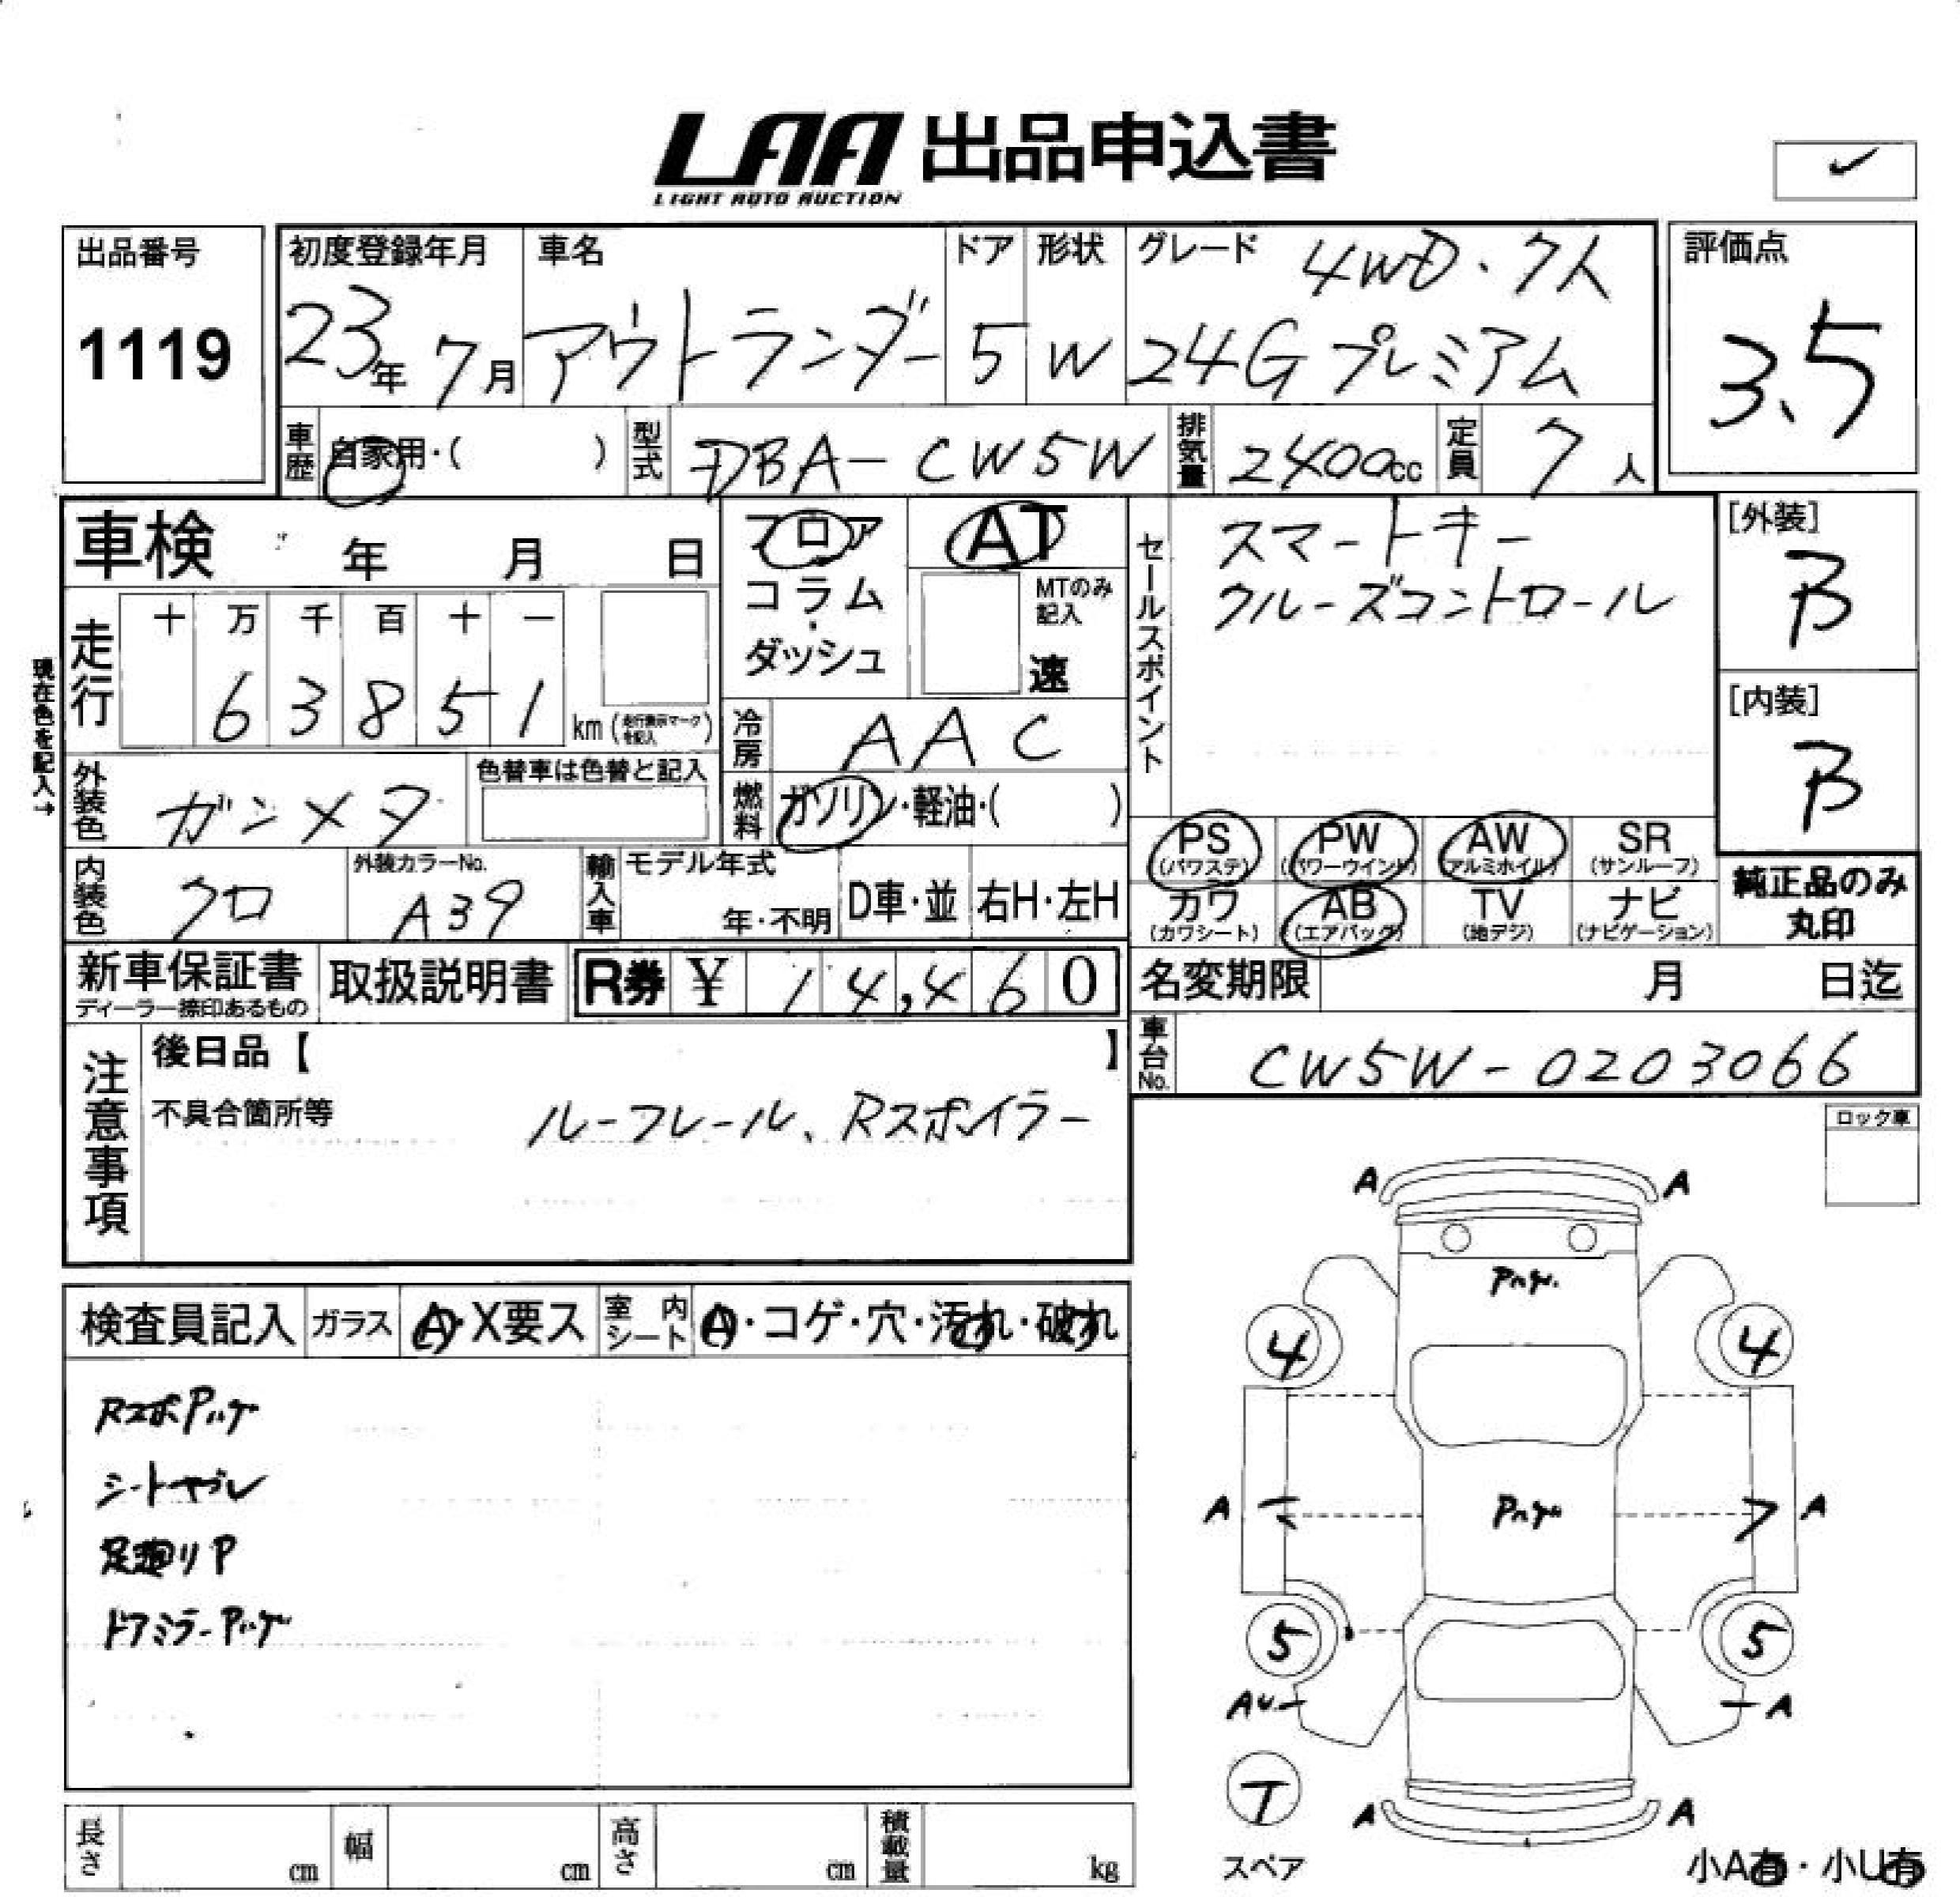 LAA 出品申込書
LIGHT AUTO AUCTION
出品番号
1119
初度登録年月
23年 7月
車名
アウトランダー
ドア
5
形状
W
グレード 4WD・7人
24G プレミアム
評価点
3.5
車歴 自家用・( )
型式 DBA-CW5W
排気量 2400cc
定員 7人
車検 年 月 日
フロア
コラム
・
ダッシュ
AT
MTのみ
記入
速
セールスポイント
スマートキー
クルーズコントロール
[外装]
B
[内装]
B
現在色を記入→
走行 十 万 千 百 十 一
6 3 8 5 1 km (走行表示マークを記入)
冷房 AAC
外装色 ガンメタ
色替車は色替と記入
燃料 ガソリン・軽油・( )
PS (パワステ) PW (パワーウインド) AW (アルミホイル) SR (サンルーフ)
内装色 クロ
外装カラーNo.
A39
輸入車 モデル年式
年・不明 D車・並 右H・左H
カワ (カワシート) AB (エアバック) TV (地デジ) ナビ (ナビゲーション)
純正品のみ
丸印
新車保証書
ディーラー捺印あるもの
取扱説明書
R券 ¥ 14,460
名変期限 月 日迄
車台No. CW5W-0203066
注意事項
後日品【 】
不具合箇所等 ルーフレール、Rスポイラー
ロック車
検査員記入 ガラス A・X要ス 室内シート A・コゲ・穴・汚れ・破れ
RスポPハゲ
シートヤブレ
足廻りP
ドアミラーPハゲ
A A
Pハゲ
4 4
A Pハゲ A
5 5
AU A
T
スペア
A A
小A有・小U有
長さ cm 幅 cm 高さ cm 積載量 kg